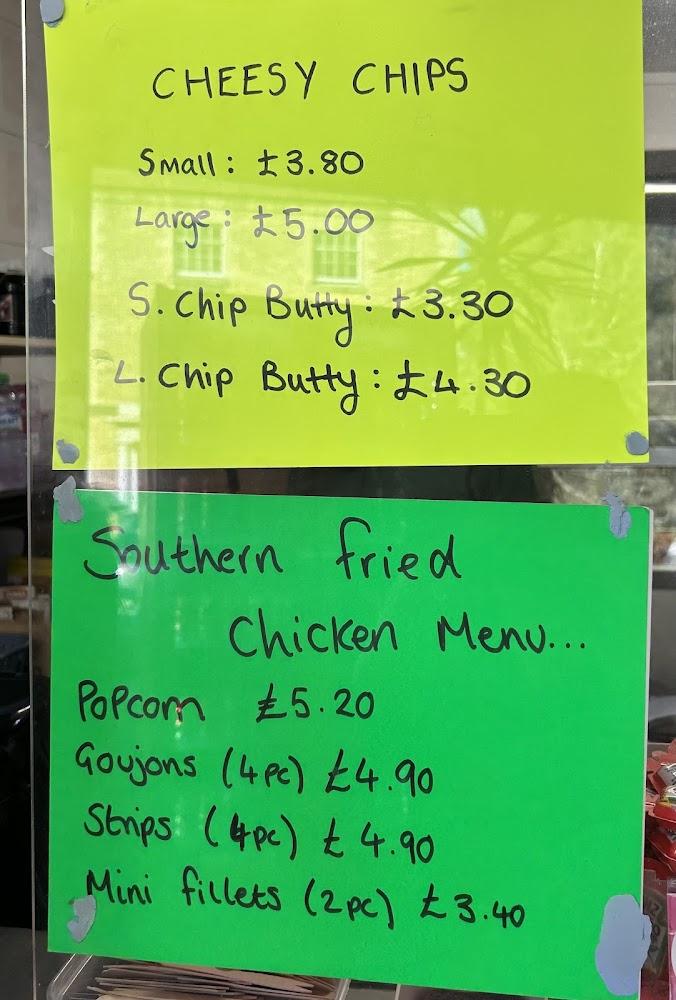 CHEESY CHIPS
Small: £3.80
Large: £5.00
S. Chip Butty: £3.30
L. Chip Butty: £4.30
Southern fried
Chicken Menu...
Popcorn £5.20
Goujons (4pc) £4.90
Strips (4pc) £4.90
Mini fillets (2pc) £3.40